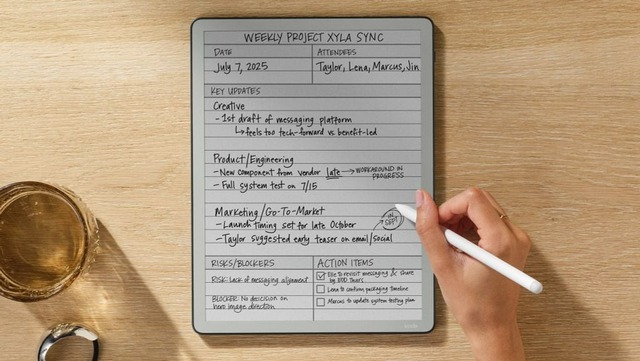 WEEKLY PROJECT XYLA SYNC
DATE
July 7, 2025
ATTENDEES
Taylor, Lena, Marcus, Jin
KEY UPDATES
Creative
- 1st draft of messaging platform
↳ feels too tech-forward vs benefit-led
Product/Engineering
- New component from vendor late → WORKAROUND IN
PROGRESS
- Full system test on 7/15
Marketing/Go-To-Market
- Launch timing set for late October
- Taylor suggested early teaser on email/social
IN
SEPT
RISKS/BLOCKERS
RISK: Lack of messaging alignment
BLOCKER: No decision on
hero image direction
ACTION ITEMS
to revisit messaging & share
by EOD Thurs
Lena to confirm packaging timeline
Marcus to update system testing plan